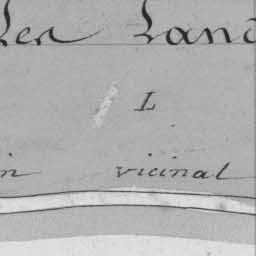 Les Land
L
in vicinal